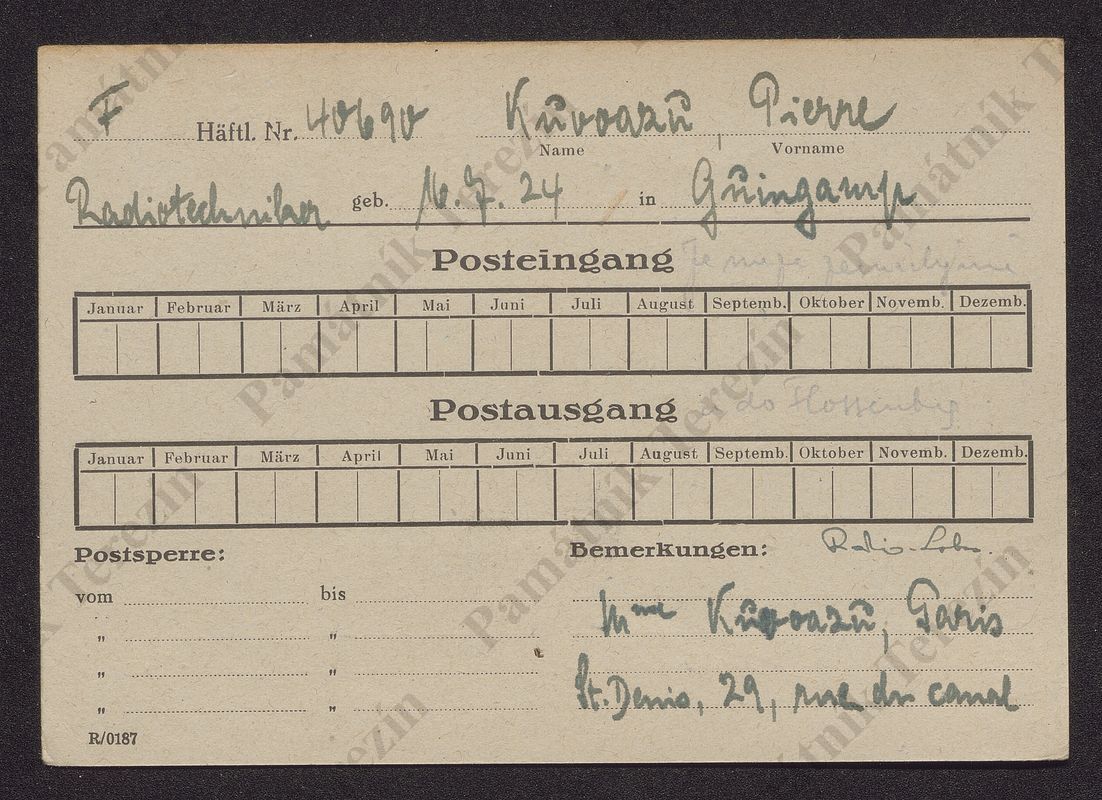 F Häftl. Nr. 40690 Kuvoazu, Pierre
Name Vorname
Radiotechniker geb. 16.7.24 in Guingamp
Posteingang
Januar Februar März April Mai Juni Juli August Septemb. Oktober Novemb. Dezemb.
Postausgang do Flossenbg
Januar Februar März April Mai Juni Juli August Septemb. Oktober Novemb. Dezemb.
Postsperre: Bemerkungen: Radio-
vom bis
Mme Kuvoazu, Paris
" "
" "
St. Denis, 29, rue du canal
" "
R/0187
Památník Terezín